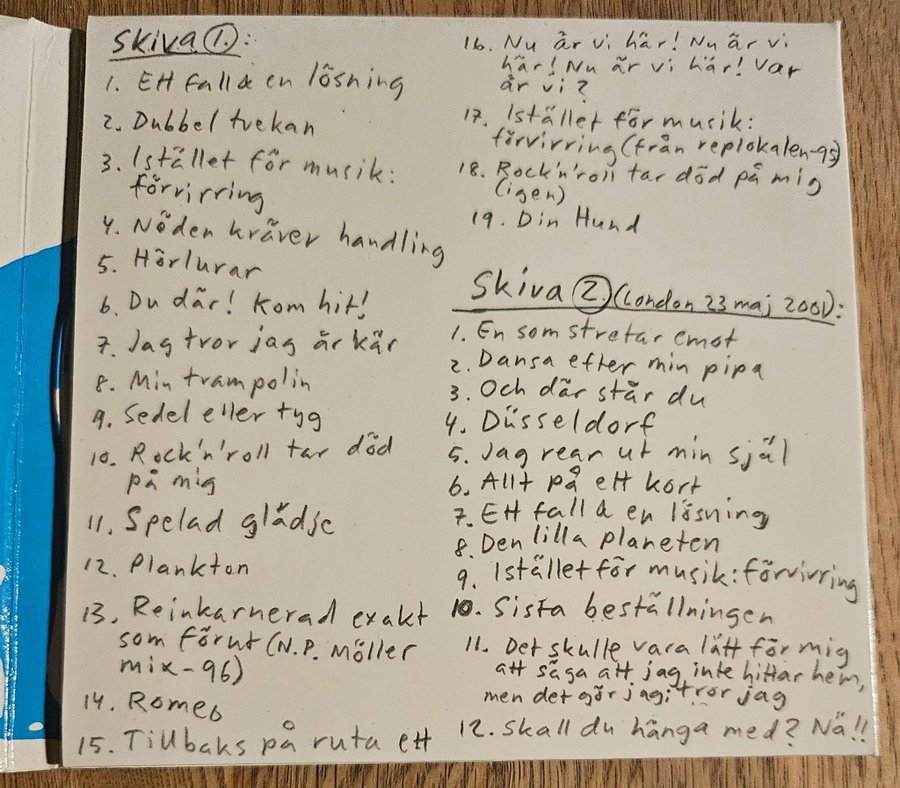 Skiva 1.:
1. Ett fall & en lösning
2. Dubbel tvekan
3. Istället för musik:
förvirring
4. Nöden kräver handling
5. Hörlurar
6. Du där! Kom hit!
7. Jag tror jag är kär
8. Min trampolin
9. Sedel eller tyg
10. Rock'n'roll tar död
på mig
11. Spelad glädje
12. Plankton
13. Reinkarnerad exakt
som förut (N.P. Möller
mix-96)
14. Romeo
15. Tillbaks på ruta ett
16. Nu är vi här! Nu är vi
här! Nu är vi här! Var
är vi?
17. Istället för musik:
förvirring (från replokalen-95)
18. Rock'n'roll tar död på mig
(igen)
19. Din Hund
Skiva 2. (London 23 maj 2001):
1. En som stretar emot
2. Dansa efter min pipa
3. Och där står du
4. Düsseldorf
5. Jag rear ut min själ
6. Allt på ett kort
7. Ett fall & en lösning
8. Den lilla planeten
9. Istället för musik: förvirring
10. Sista beställningen
11. Det skulle vara lätt för mig
att säga att jag inte hittar hem,
men det gör jag; tror jag
12. Skall du hänga med? Nä!!